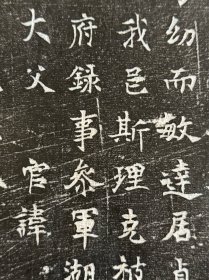 幼而敏達居貞
我邑斯理克
府錄事參軍湖
大父 官諱